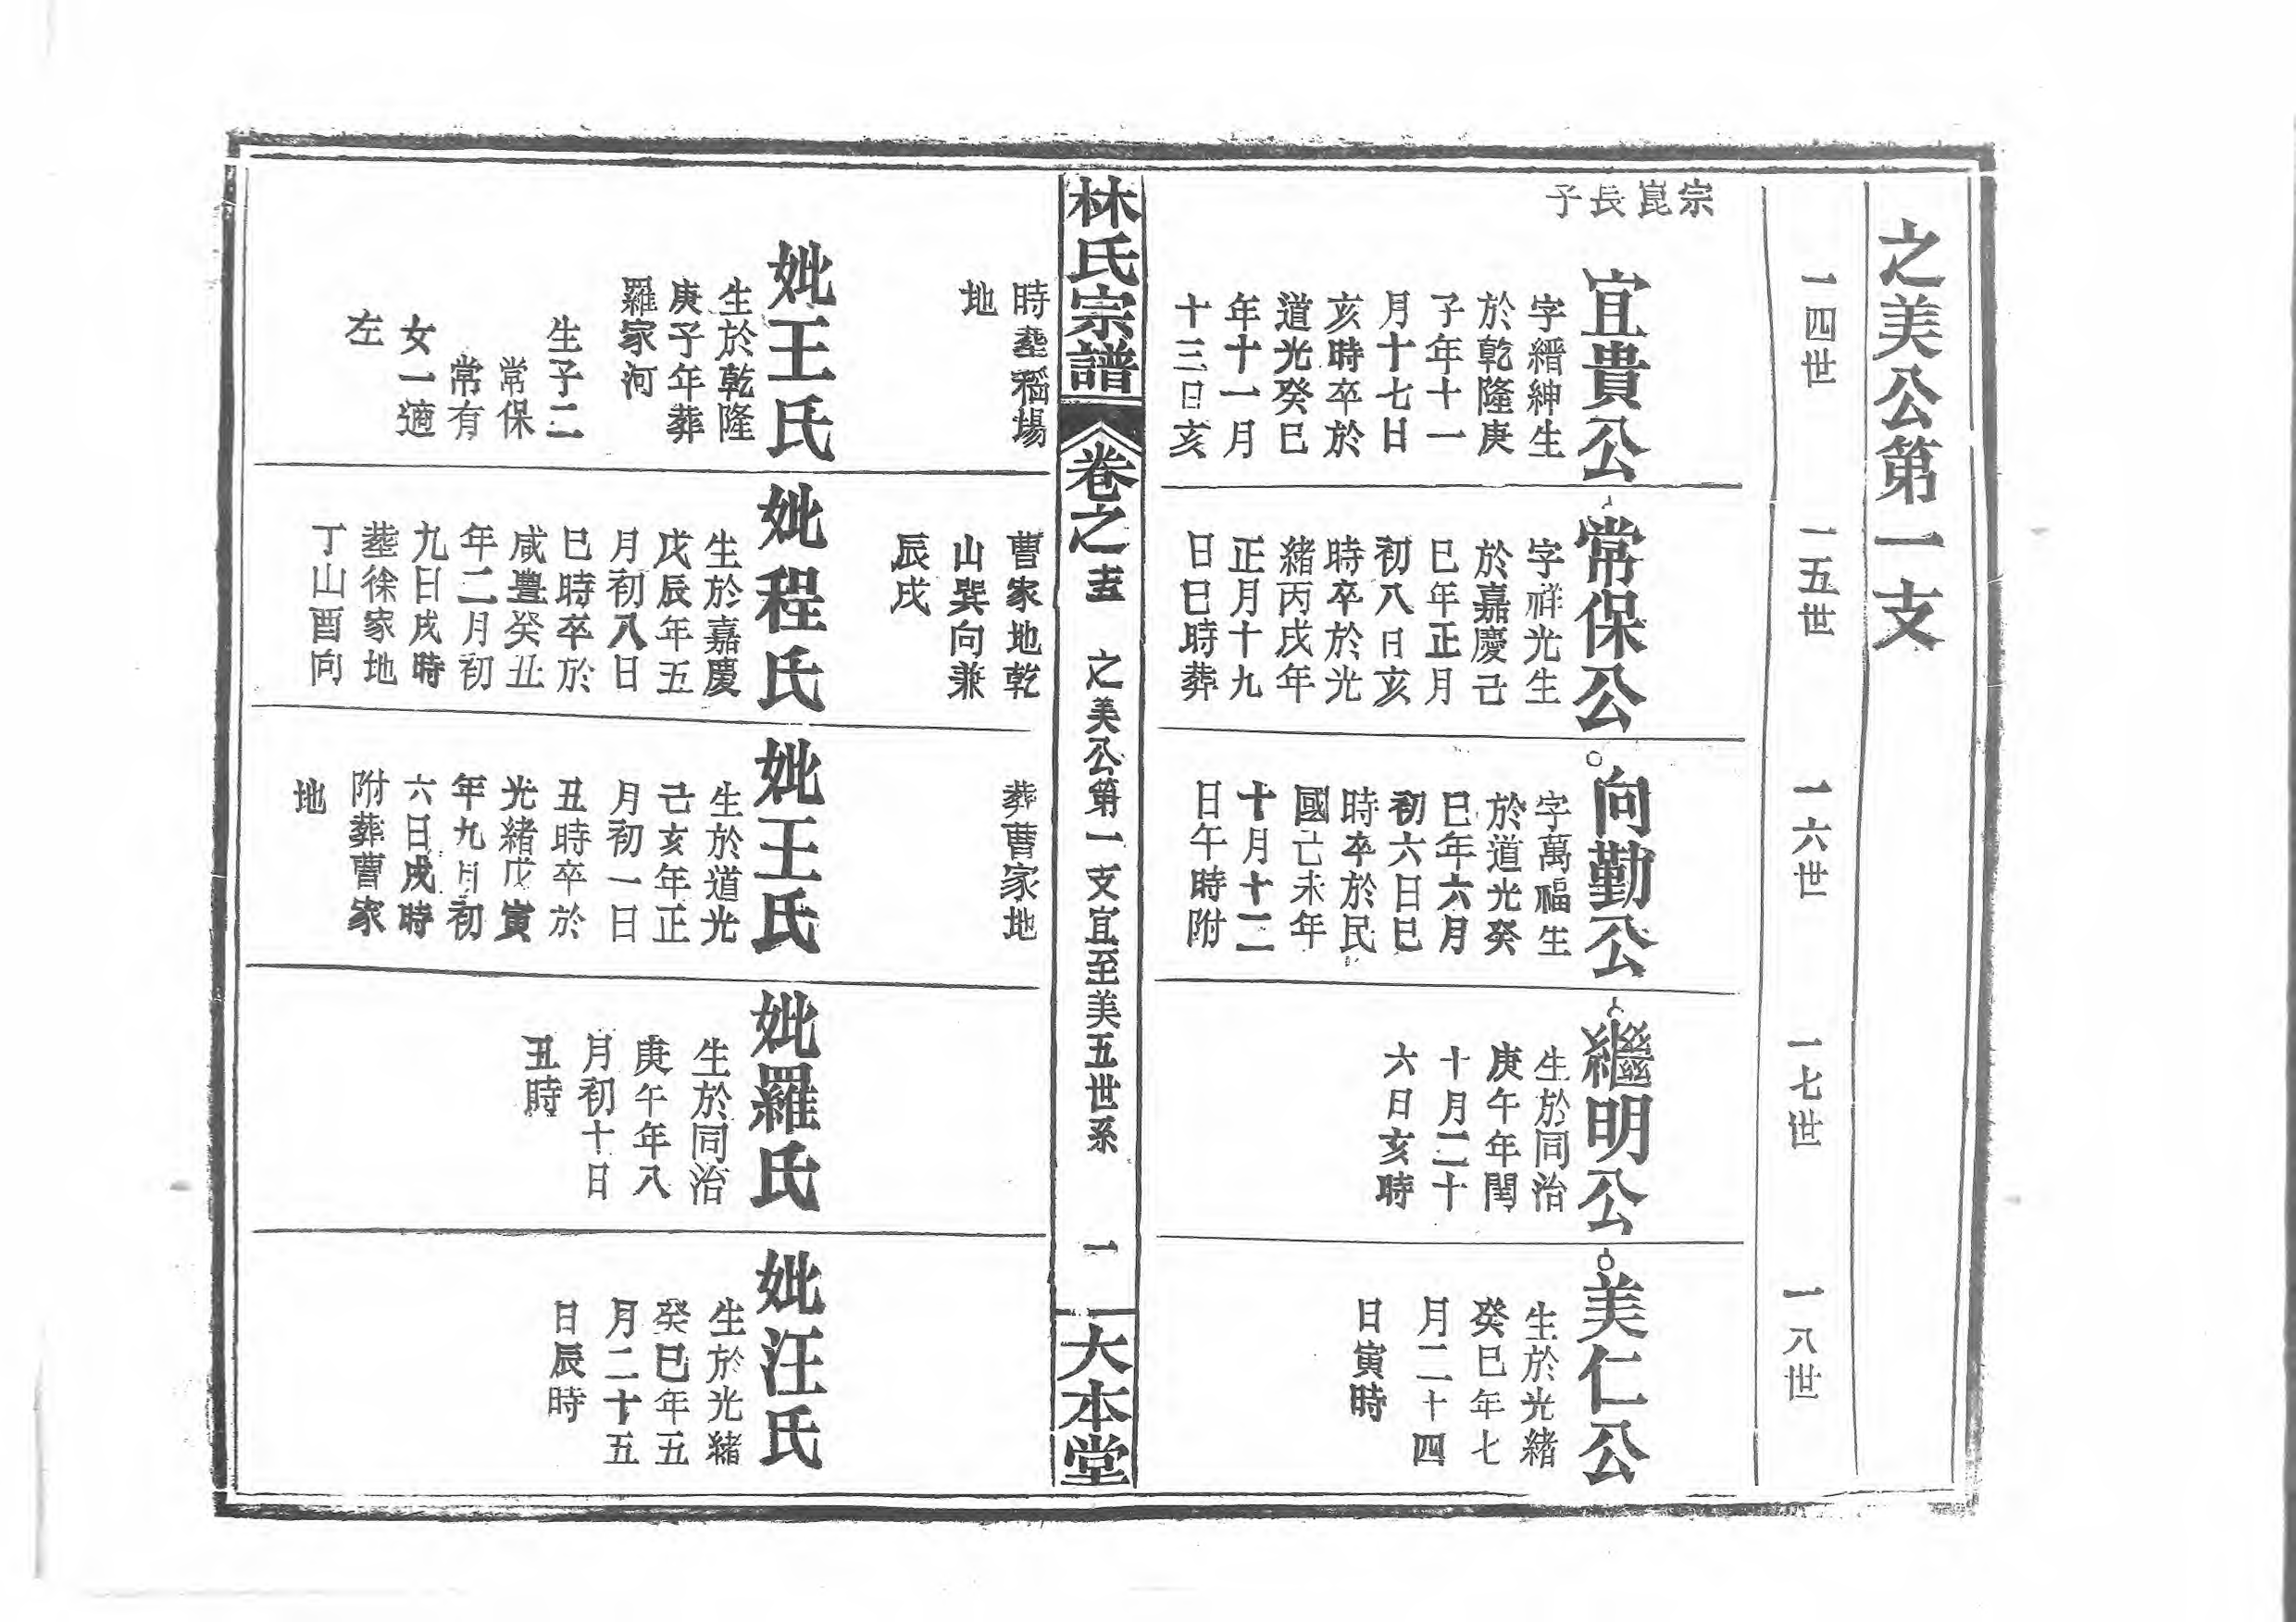 之美公第一支
一四世
一五世
一六世
一七世
一八世
宗崑長子
宜貴公
字縉紳生
於乾隆庚
子年十一
月十七日
亥時卒於
道光癸巳
年十一月
十三日亥
時塟稻場
地
常保公
字祥光生
於嘉慶己
巳年正月
初八日亥
時卒於光
緒丙戌年
正月十九
日巳時葬
曹家地乾
山巽向兼
辰戌
向勤公
字萬福生
於道光癸
巳年六月
初六日巳
時卒於民
國己未年
十月十二
日午時附
葬曹家地
繼明公
生於同治
庚午年閏
十月二十
六日亥時
美仁公
生於光緒
癸巳年七
月二十四
日寅時
林氏宗譜
卷之
之美公第一支宜至美五世系
一
大本堂
妣王氏
生於乾隆
庚子年葬
羅家河
生子二
常保
常有
女一適
左
妣程氏
生於嘉慶
戊辰年五
月初八日
巳時卒於
咸豐癸丑
年二月初
九日戌時
塟徐家地
丁山酉向
妣王氏
生於道光
己亥年正
月初一日
丑時卒於
光緒戊寅
年九月初
六日戌時
附葬曹家
地
妣羅氏
生於同治
庚午年八
月初十日
丑時
妣汪氏
生於光緒
癸巳年五
月二十五
日辰時